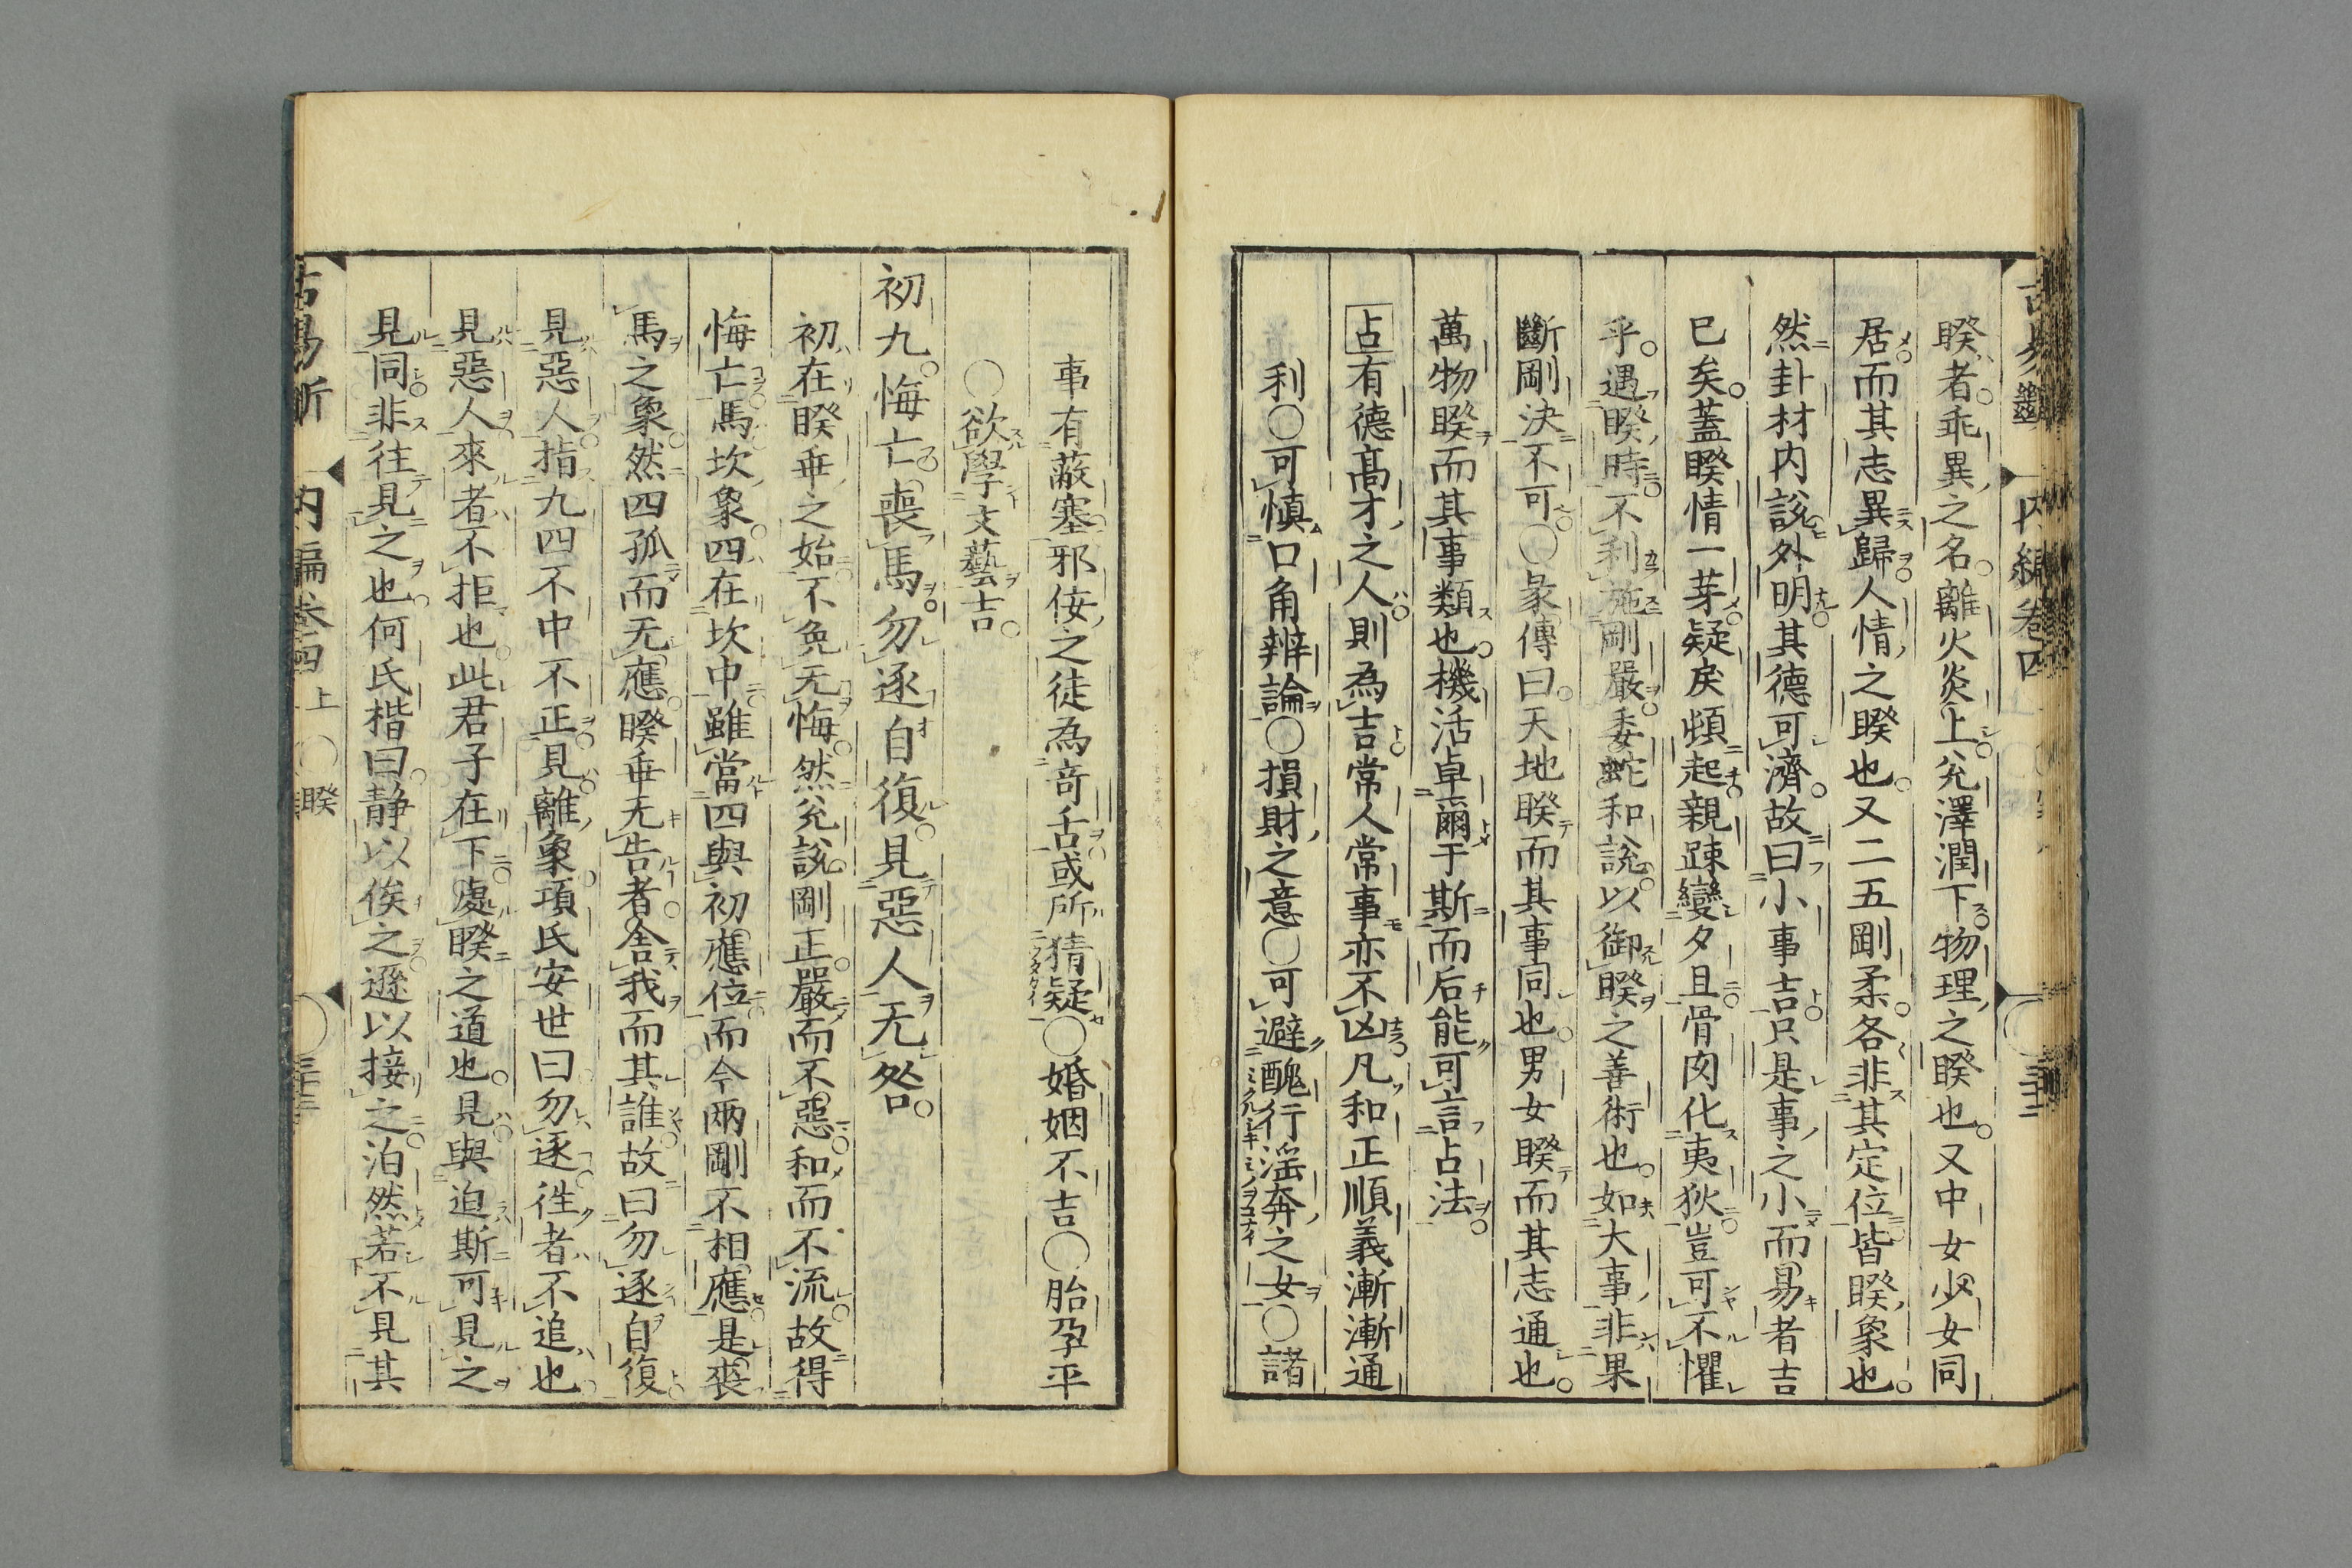 睽者乖異之名離火炎上兊澤潤下物理之睽也又中女少女同
居而其志異歸人情之睽也又二五剛柔各非其定位皆睽象也
然卦材内說外明其德可濟故曰小事吉只是事之小而易者吉
已矣蓋睽情一芽疑戾頻起親踈變夕且骨肉化夷狄豈可不懼
乎遇睽時不利施剛嚴委蛇和說以御睽之善術也如大事非果
斷剛決不可○彖傳曰天地睽而其事同也男女睽而其志通也
萬物睽而其事類也機活卓爾于斯而后能可言占法
占有德高才之人則為吉常人常事亦不凶凡和正順義漸漸通
利○可慎口角辨論○損財之意○可避醜行淫奔之女○諸
事有蔽塞邪佞之徒為竒舌或所猜疑○婚姻不吉○胎孕平
○欲學文藝吉
初九悔亡喪馬勿逐自復見惡人无咎
初在睽乖之始不免无悔然兊說剛正嚴而不惡和而不流故得
悔亡馬坎象四在坎中雖當四與初應位而今兩剛不相應是喪
馬之象然四孤而无應睽乖无告者舍我而其誰故曰勿逐自復
見惡人指九四不中不正見離象項氏安世曰勿逐徃者不追也
見惡人來者不拒也此君子在下處睽之道也見與迫斯可見之
見同非往見之也何氏楷曰静以俟之遜以接之泊然若不見其
古易斷 内編卷四 上 ○睽 三十三